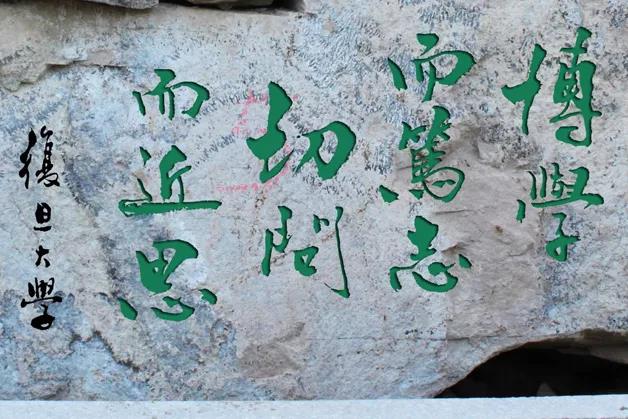 博學
而篤志
切問
而近思
復旦大學